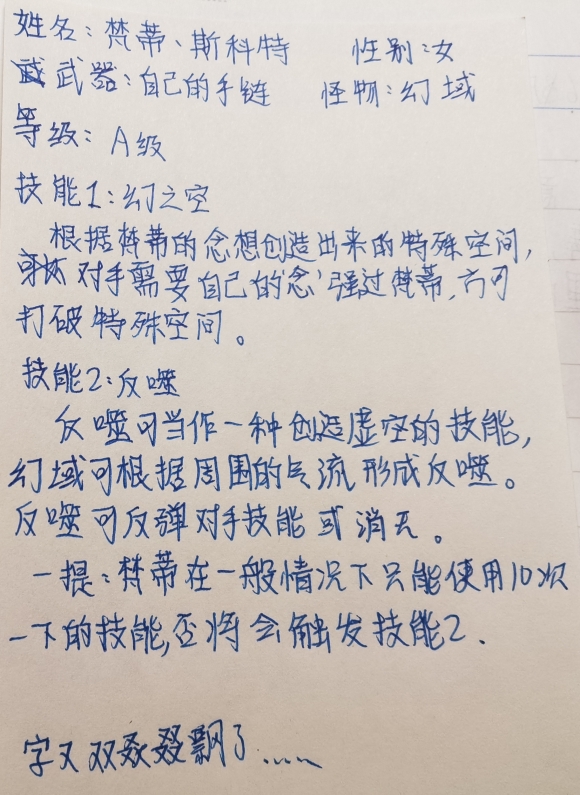 姓名：梵蒂、斯科特 性别：女
武器：自己的手链 怪物：幻域
等级：A级
技能1：幻之空
根据梵蒂的念想创造出来的特殊空间，
对手需要自己的‘念’强过梵蒂，方可
打破特殊空间。
技能2：反噬
反噬可当作一种创造虚空的技能，
幻域可根据周围的气流形成反噬。
反噬可反弹对手技能或消无。
一提：梵蒂在一般情况下只能使用10次
一下的技能，否将会触发技能2．
字又双叒叕飘了……